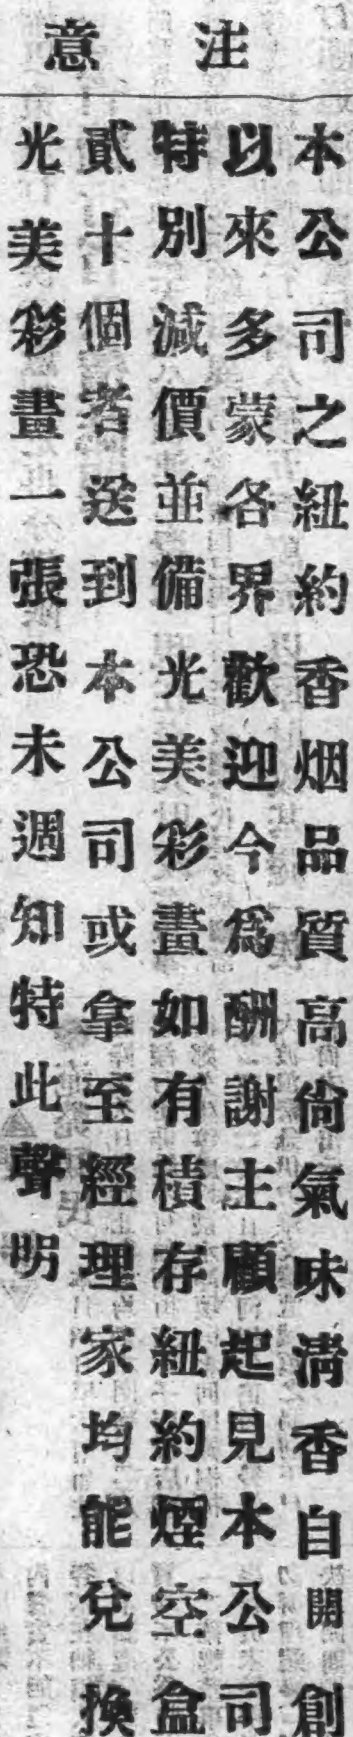 注意
本公司之紐約香烟品質高尙氣味淸香自開創
以來多蒙各界歡迎今爲酬謝主顧起見本公司
特別減價並備光美彩畫如有積存紐約煙空盒
貳十個者送到本公司或拿至經理家均能兌換
光美彩畫一張恐未週知特此聲明